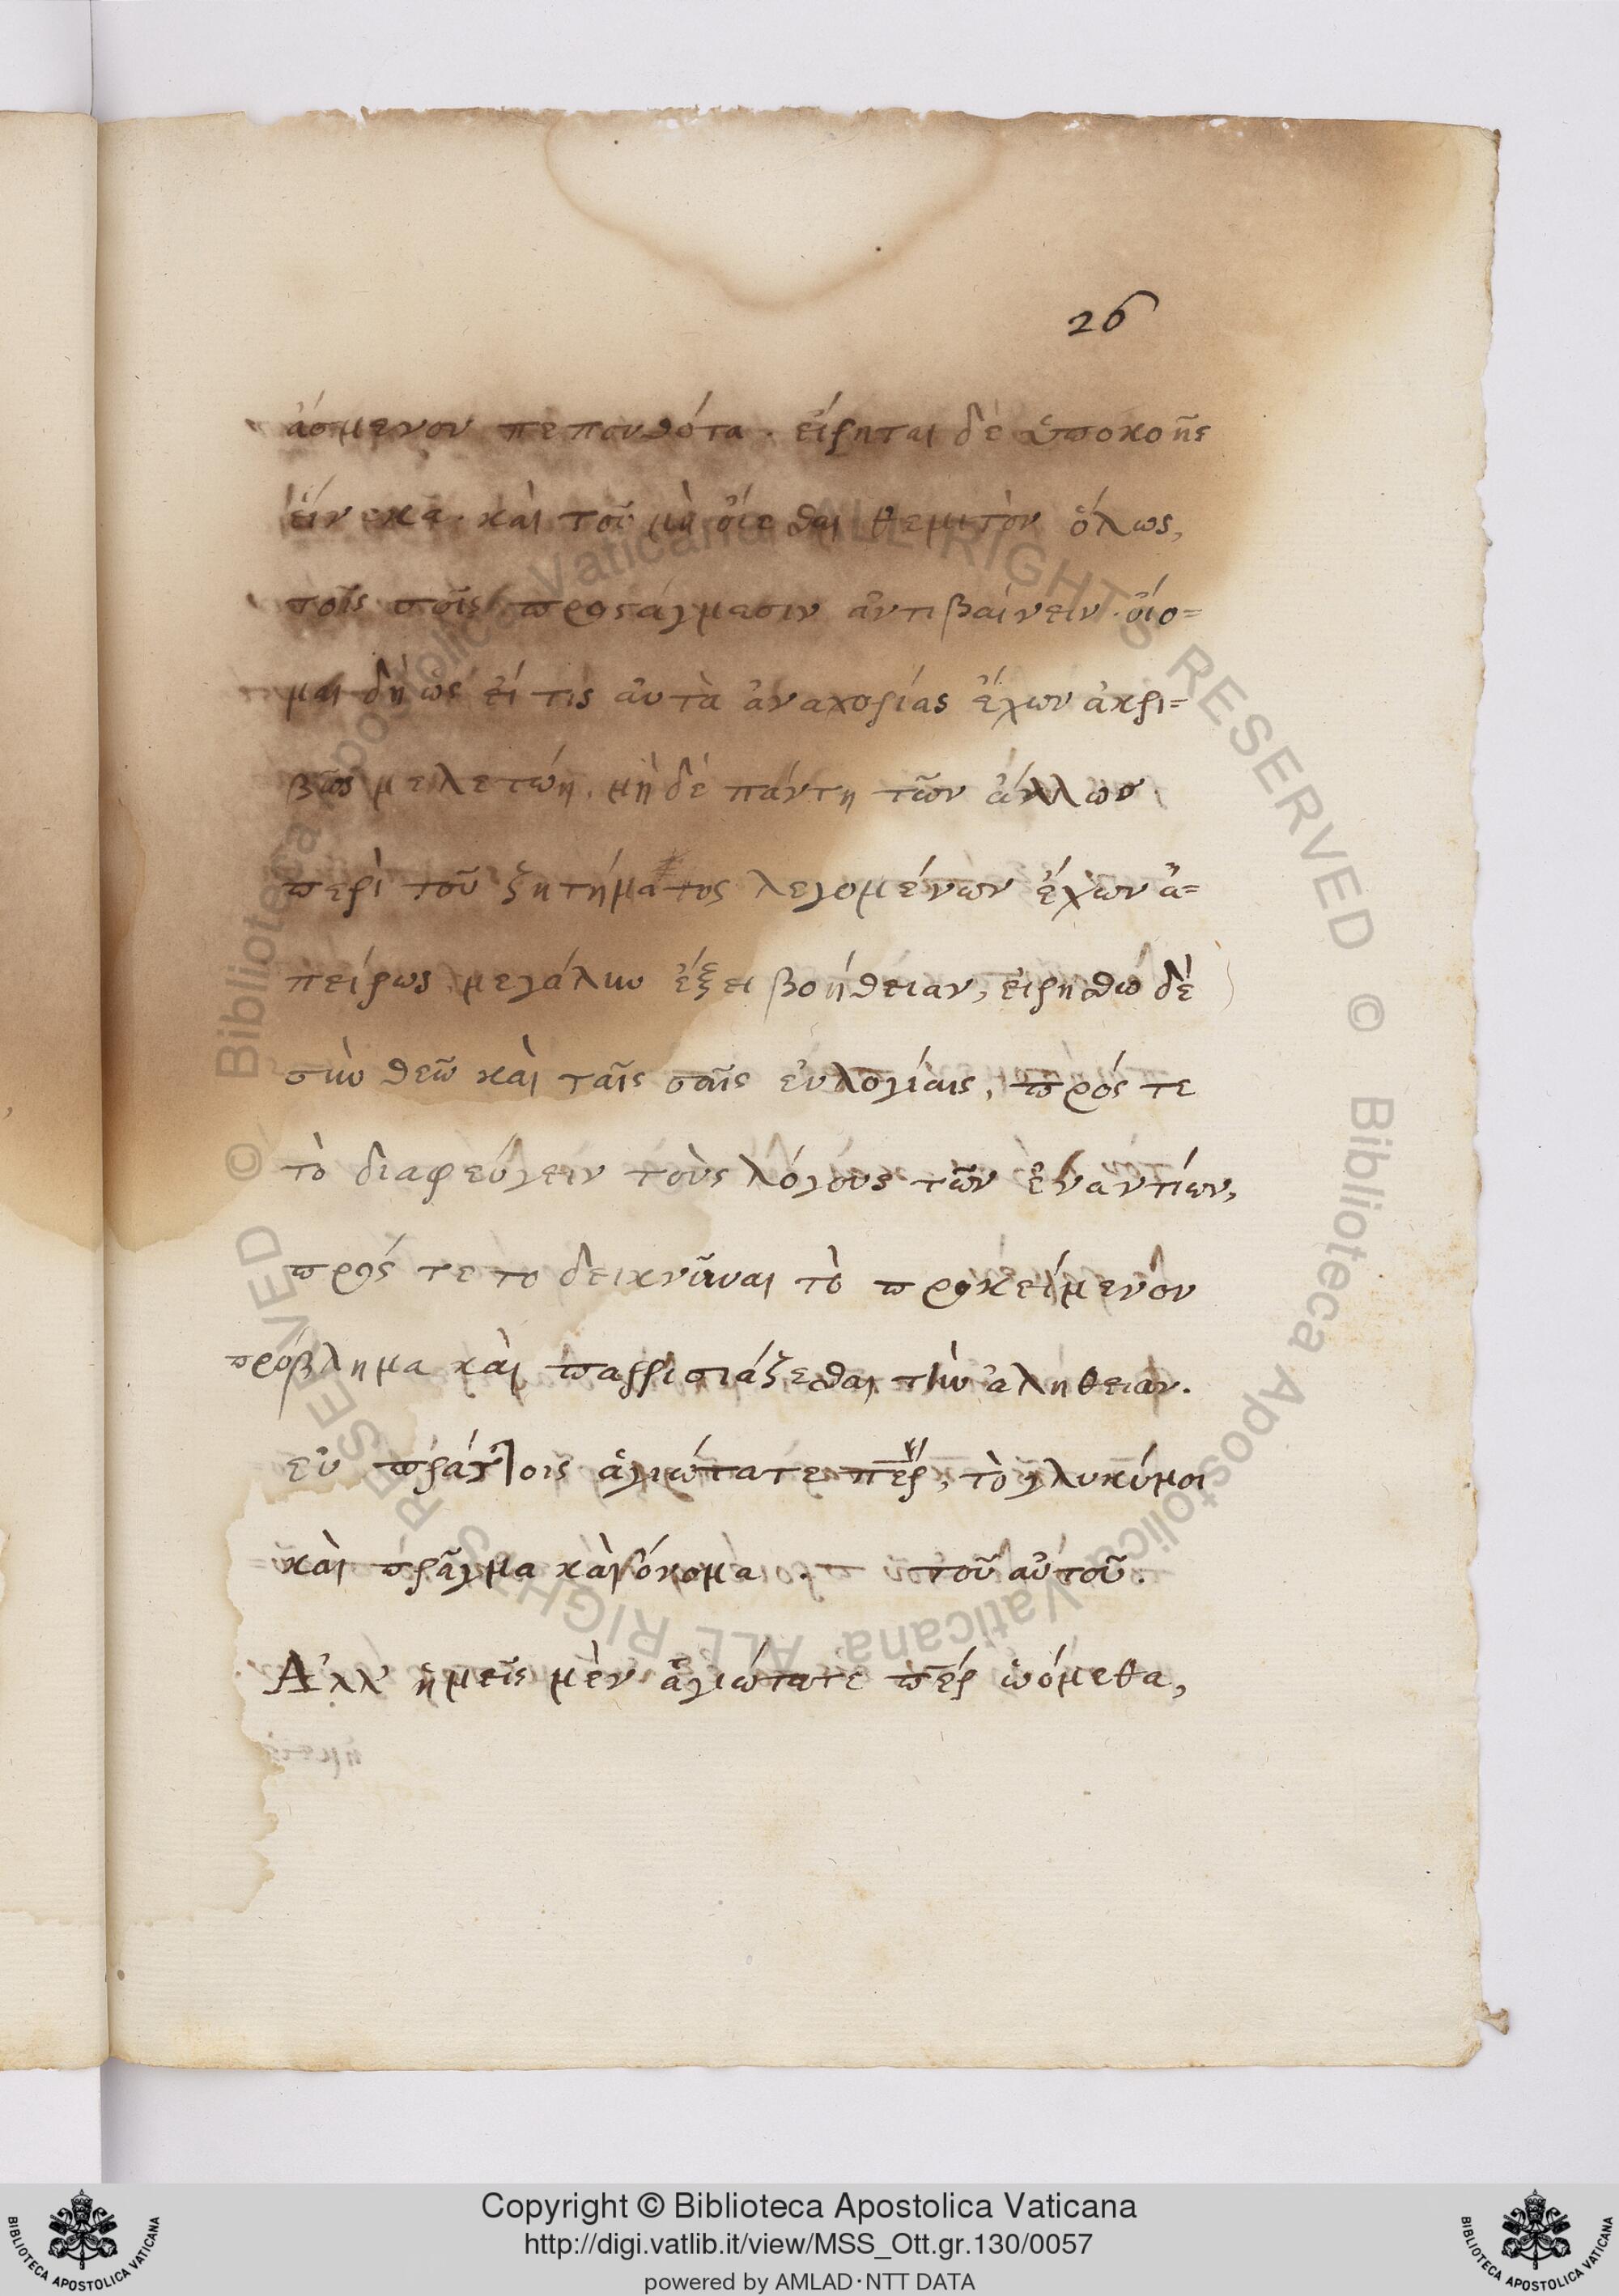 26
ἄσμενον πεπονθότα. εἴρηται δὲ ὑποκοῆς
εἵνεκα. καὶ τοῦ μὴ οἴεσθαι θεμιτὸν ὅλως,
τοῖς σοῖς προστάγμασιν ἀντιβαίνειν. οἴο=
μαι δὴ ὡς εἴ τις αὐτὰ ἀναχορίας ἔχων ἀκρι=
βῶς μελετώη. μὴ δὲ πάντη τῶν ἄλλων
περὶ τοῦ ζητήματος λεγομένων ἔχων ἀ=
πείρως μεγάλην ἕξει βοήθειαν, εἰρήσθω δὲ
σὺν θεῶ καὶ ταῖς σαῖς εὐλογίαις, πρός τε
τὸ διαφεύγειν τοὺς λόγους τῶν ἐναντίων,
πρός τε το δεικνῦναι τὸ προκείμενον
πρόβλημα καὶ παρρισιάζεσθαι τὴν ἀλήθειαν.
εὖ πράττοις ἁγιώτατε περ, τὸ γλυκύ μοι
καὶ πρᾶγμα καὶ ὄνομα . τοῦ αὐτοῦ.
Ἀλλ' ἡμεῖς μὲν ἁγιώτατε περ ὠόμεθα,
Copyright © Biblioteca Apostolica Vaticana
http://digi.vatlib.it/view/MSS_Ott.gr.130/0057
powered by AMLAD·NTT DATA
BIBLIOTECA APOSTOLICA VATICANA
BIBLIOTECA APOSTOLICA VATICANA
© Biblioteca Apostolica Vaticana ALL RIGHTS RESERVED © Biblioteca Apostolica Vaticana ALL RIGHTS RESERVED